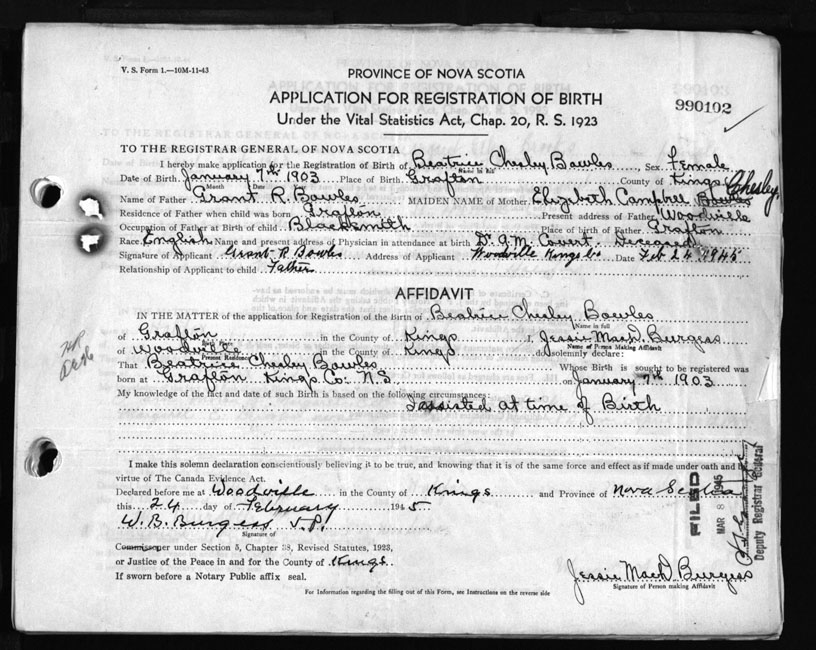 V. S. Form 1.—10M-11-43
PROVINCE OF NOVA SCOTIA
APPLICATION FOR REGISTRATION OF BIRTH
Under the Vital Statistics Act, Chap. 20, R. S. 1923
990102
TO THE REGISTRAR GENERAL OF NOVA SCOTIA
I hereby make application for the Registration of Birth of Beatrice Chesley Bowles, Sex Female
Name in full
Date of Birth January 7th 1903 Place of Birth Grafton County of Kings
Month Date
Name of Father Grant R. Bowles MAIDEN NAME of Mother Elizabeth Campbell Bowles Chesley
Residence of Father when child was born Grafton Present address of Father Woodville
Occupation of Father at Birth of child Blacksmith Place of birth of Father Grafton
Race English Name and present address of Physician in attendance at birth Dr. A. M. Covert. Deceased
Signature of Applicant Grant R Bowles Address of Applicant Woodville Kings Co Date Feb 24 1945
Relationship of Applicant to child Father
AFFIDAVIT
IN THE MATTER of the application for Registration of the Birth of Beatrice Chesley Bowles
Name in full
of Grafton in the County of Kings I, Jessie MacD. Burgess
Birth Place Name of Person Making Affidavit
of Woodville in the County of Kings do solemnly declare:
Present Residence
That Beatrice Chesley Bowles Whose Birth is sought to be registered was
born at Grafton Kings Co: N.S on January 7th 1903
My knowledge of the fact and date of such Birth is based on the following circumstances:
I assisted at time of Birth
I make this solemn declaration conscientiously believing it to be true, and knowing that it is of the same force and effect as if made under oath and by
virtue of The Canada Evidence Act.
Declared before me at Woodville in the County of Kings and Province of Nova Scotia
this 24 day of February 1945
W. B. Burgess J.P.
Signature of
Commissoner under Section 5, Chapter 38, Revised Statutes, 1923,
or Justice of the Peace in and for the County of Kings
If sworn before a Notary Public affix seal.
Jessie MacD. Burgess
Signature of Person making Affidavit
For Information regarding the filling out of this Form, see Instructions on the reverse side
FILED
MAR 8 1945
Deputy Registrar General